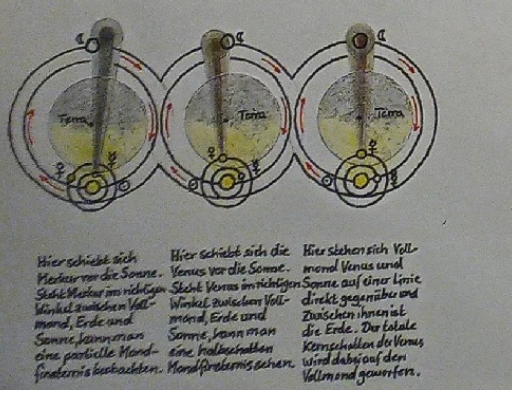 Terra
Terra
Terra
Hier schiebt sich
Merkur vor die Sonne.
Steht Merkur im richtigen
Winkel zwischen Voll-
mond, Erde und
Sonne, kann man
eine partielle Mond-
finsternis beobachten.
Hier schiebt sich die
Venus vor die Sonne.
Steht Venus im richtigen
Winkel zwischen Voll-
mond, Erde und
Sonne, kann man
eine halbschatten
Mondfinsternis sehen.
Hier stehen sich Voll-
mond Venus und
Sonne auf einer Linie
direkt gegenüber und
Zwischen ihnen ist
die Erde. Der totale
Kernschatten der Venus
wird dabei auf den
Vollmond geworfen.